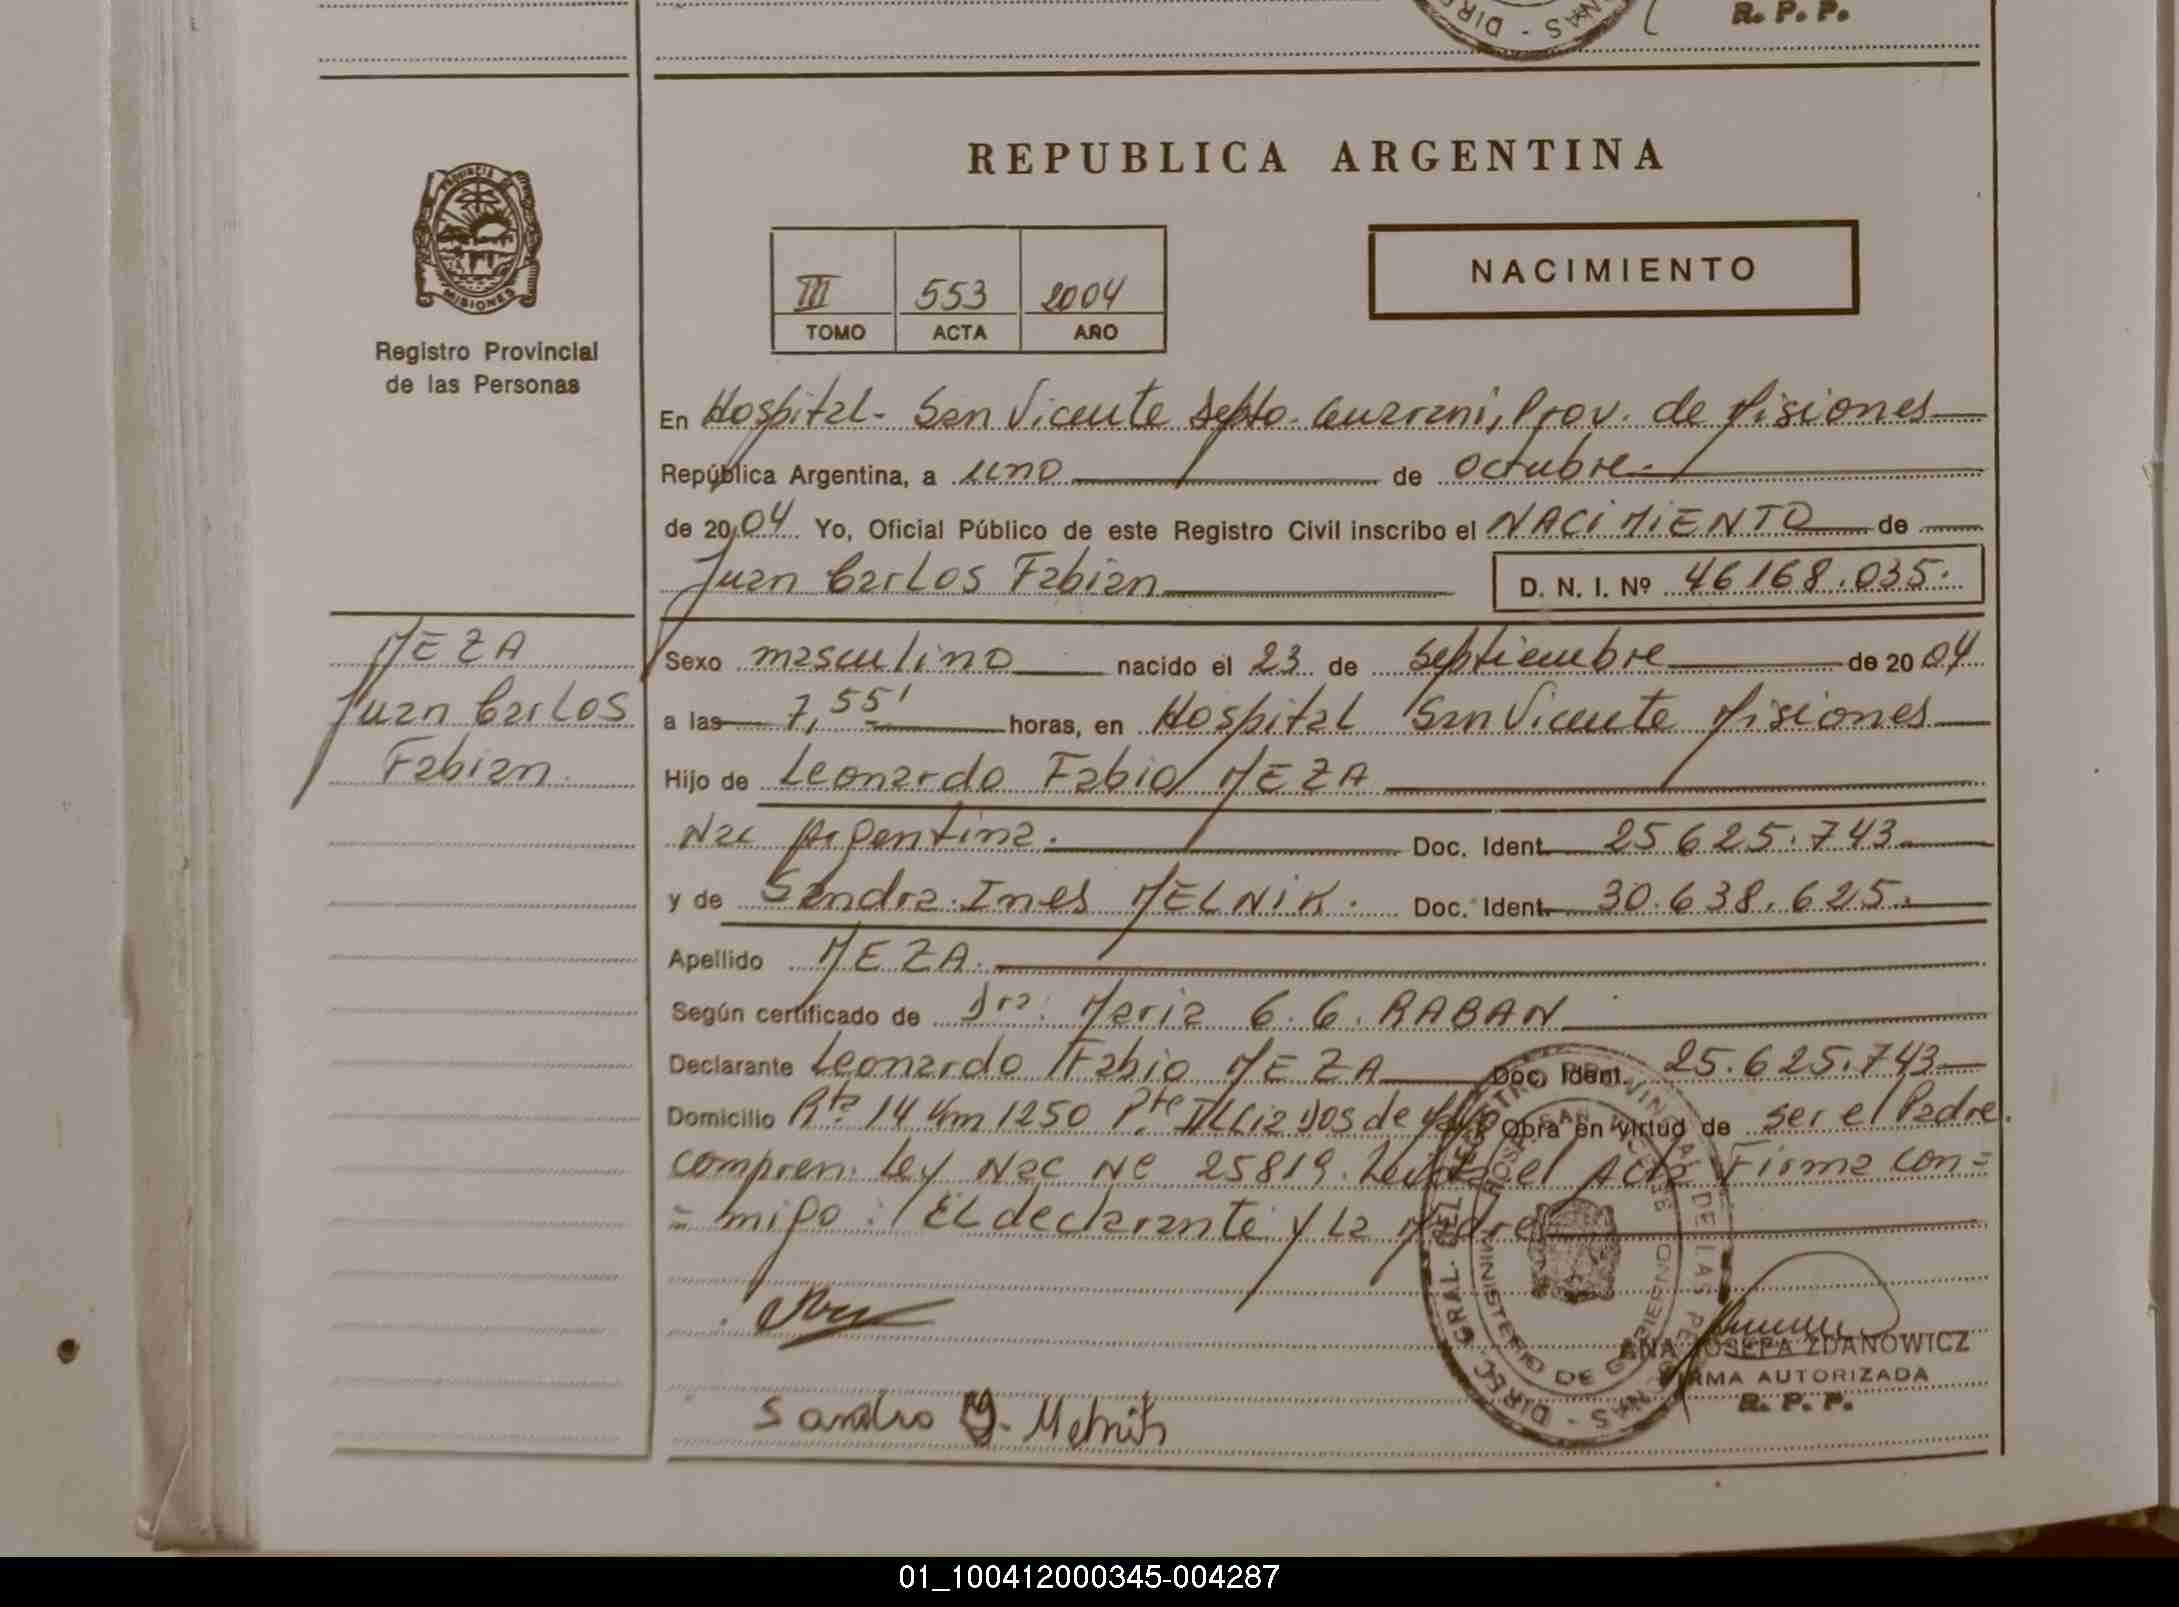 R. P. P.
REPUBLICA ARGENTINA
PROVINCIA DE
MISIONES
Registro Provincial
de las Personas
III 553 2004
TOMO ACTA AÑO
NACIMIENTO
En Hospital - San Vicente Depto. Guarani, Prov. de Misiones
República Argentina, a uno de octubre.
de 2004 Yo, Oficial Público de este Registro Civil inscribo el NACIMIENTO de
Juan Carlos Fabian D. N. I. Nº 46168.035.
MEZA
Juan Carlos
Fabian
Sexo masculino nacido el 23 de septiembre de 2004
a las 7,55' horas, en Hospital San Vicente Misiones
Hijo de Leonardo Fabio MEZA
Nac Argentina. Doc. Ident. 25625.743
y de Sandra Ines MELNIK. Doc. Ident. 30.638.625.
Apellido MEZA.
Según certificado de Dra. Maria G. G. RABAN
Declarante Leonardo Fabio MEZA Doc. Ident. 25.625.743
Domicilio Rta 14 Km 1250 Pte Dos de Obra en virtud de ser el Padre.
compren. Ley Nac Nº 25819. Leida el Acta Firma con=
= migo: El declarante y La Madre
DIREC. GRAL. DEL REGISTRO PROVINCIAL DE LAS PERSONAS
MINISTERIO DE GOBIERNO
ANA JOSEFA ZDANOWICZ
FIRMA AUTORIZADA
R. P. P.
Sandra Y. Melnik
01_100412000345-004287